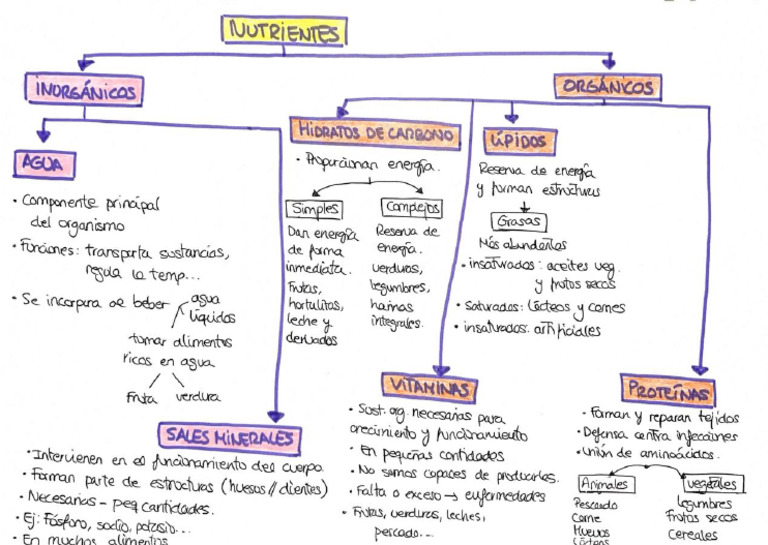 NUTRIENTES
INORGÁNICOS
ORGÁNICOS
AGUA
• Componente principal
del organismo
• Funciones: transporta sustancias,
regula la temp...
• Se incorpora al beber
agua
líquidos
tomar alimentos
ricos en agua
Fruta verdura
SALES MINERALES
• Intervienen en el funcionamiento del cuerpo.
• Forman parte de estructuras (huesos // dientes)
• Necesarias - peq cantidades.
• Ej: Fósforo, sodio, potasio...
• En muchos alimentos
HIDRATOS DE CARBONO
• Proporcionan energía.
Simples
Dan energía
de forma
inmediata.
Frutas,
hortalitas,
leche y
derivados
Complejos
Reserva de
energía.
verduras,
legumbres,
harinas
integrales.
LÍPIDOS
Reserva de energía
y forman estructuras
Grasas
Más abundantes
• insaturados: aceites veg.
y frutos secos
• Saturados: Lácteos y carnes
• insaturados: artificiales
VITAMINAS
• Sust. org. necesarias para
crecimiento y funcionamiento
• En pequeñas cantidades
• No somos capaces de producirlas.
• Falta o exceso → enfermedades
• Frutas, verduras, leches,
pescado...
PROTEÍNAS
• Forman y reparan tejidos
• Defensa contra infecciones
• Unión de aminoácidos.
Animales
Pescado
Carne
Huevos
Lácteos
vegetales
Legumbres
Frutos secos
Cereales